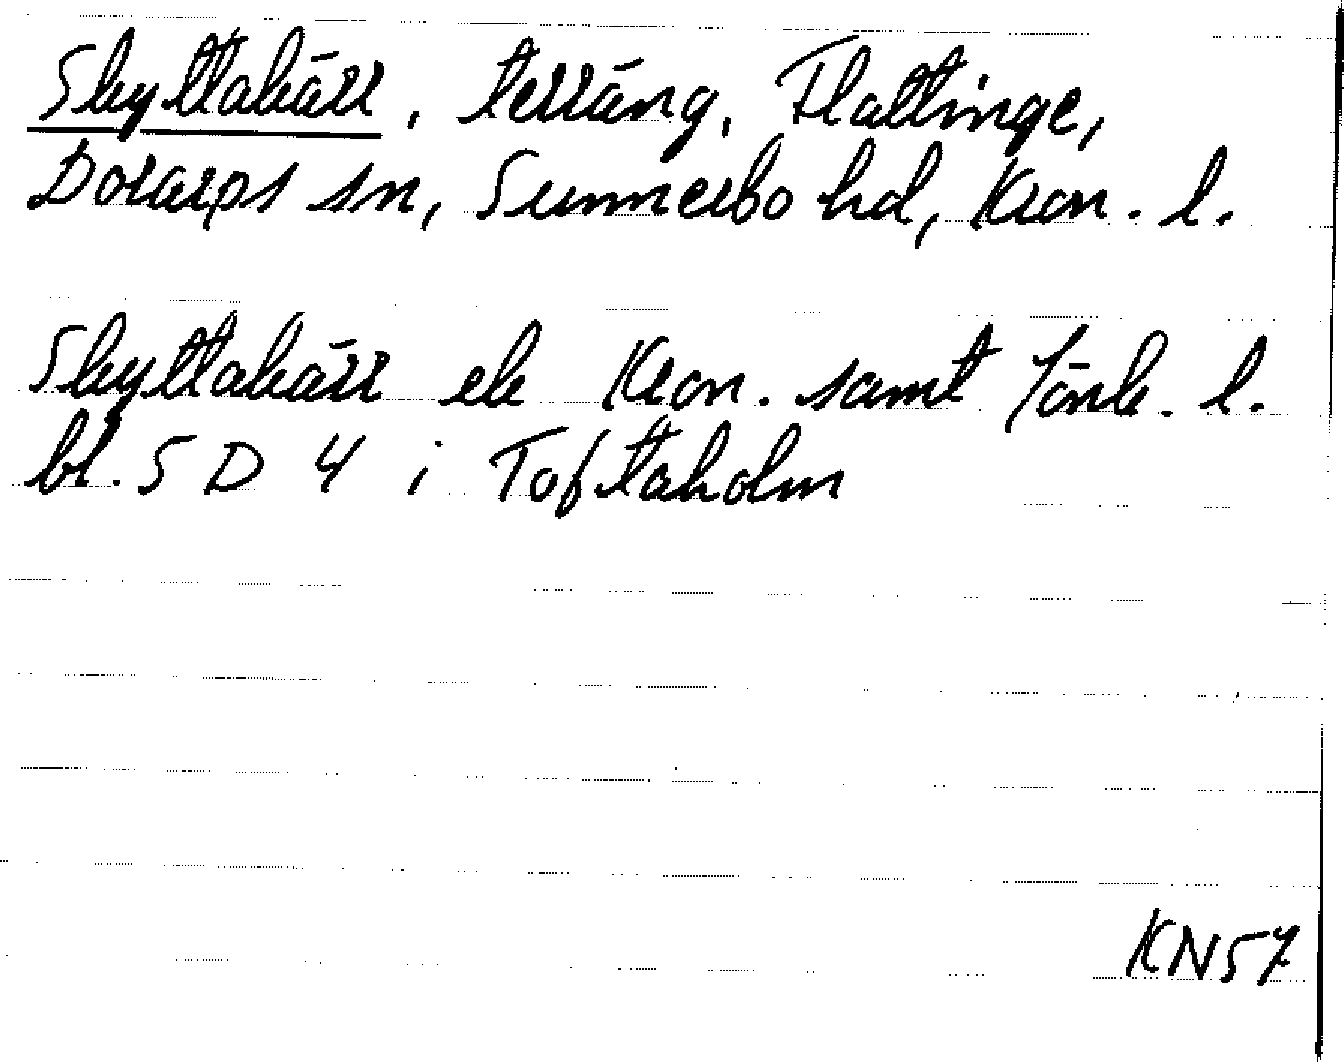 Skyttakärr, terräng, Flattinge,
Dörarps sn, Sunnerbo hd, Kron. l.
Skyttakärr ek Kron. samt Jönk. l.
bl. 5 D 4 i Toftaholm
KN57